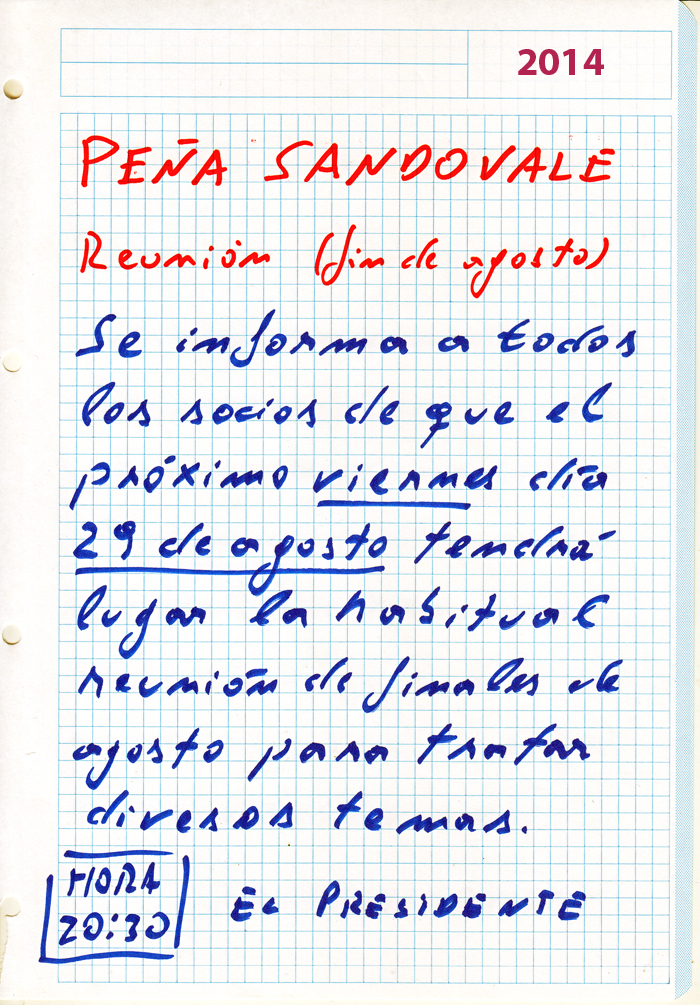 2014
PEÑA SANDOVALE
Reunión (fin de agosto)
Se informa a todos
los socios de que el
próximo viernes día
29 de agosto tendrá
lugar la habitual
reunión de finales de
agosto para tratar
divesos temas.
HORA
20:30
EL PRESIDENTE